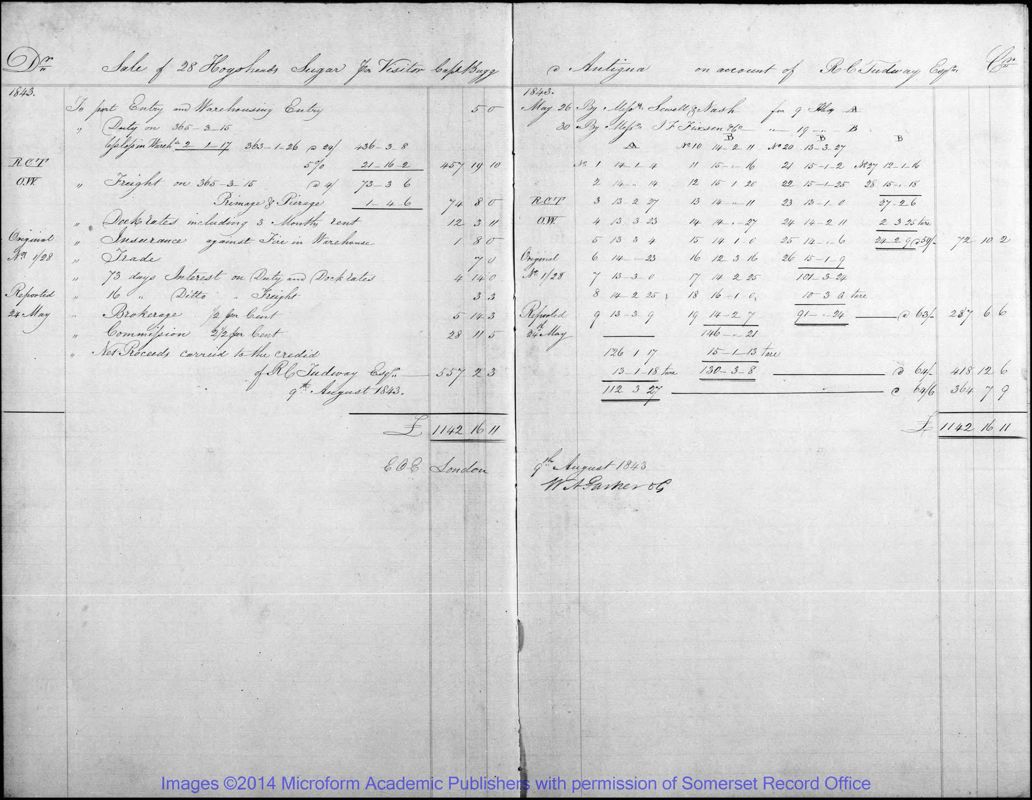 Dr. Sale of 28 Hogsheads Sugar per Visitor Capt Bagg
1843.
To port Entry and Warehousing Entry 5 0
" Duty on 365-3-15
less loss in Wareh.e 2-1-17 363-1-26 @ 24/ 436-3-8
R.C.T 5% 21-16-2 457 19 10
O.W. " Freight on 365-3-15 @ 4/ 73-3-6
Primage & Pierage 1-4-6 74 8 0
" Dock Rates including 3 Months rent 12 3 11
Original " Insurance against Fire in Warehouse 1 8 0
No. 1/28 " Trade 7 0
" 73 days Interest on Duty and Dock rates 4 14 0
Reported " 16 " Ditto " Freight 3 3
24 May " Brokerage 1/2 per Cent 5 14 3
" Commission 2 1/2 per Cent 28 11 5
" Net Proceeds carried to the credit
of R C Tudway Esqr. 557 2 3
9th August 1843.
£ 1142 16 11
E O E London
@ Antigua on account of R C Tudway Esqr. Cr.
1843.
May 26 By Messrs. Sewell & Nash for 9 Hhg A
30 By Messrs. I F " 19 " B
A B B B
No 10 14-2-11 No 20 13-3-27
No 1 14-1-4 11 15-"-16 21 15-1-2 No 27 12-1-16
2 14-"-14 12 15 1 20 22 15-1-25 28 15-"-18
R.C.T 3 13-2 27 13 14-"-11 23 13-1-0 27-2-6
O.W. 4 13 3 23 14 14-"-27 24 14-2 11 2 3 25 tare
5 13 3 4 15 14 1 0 25 14-"-6 24-2 9 @ 59/- 72 10 2
Original 6 14-"-23 16 12 3 16 26 15-1-9
No. 1/28 7 13-3-0 17 14 2 25 101-3-24
8 14-2 25 18 16-1-0 10-3-0 tare
Reported 9 13-3-9 19 14-2 7 91-"-24 @ 63/- 287 6 6
24th May 146-"-21
126 1 17 15-1-13 tare
13-1-18 tare 130-3-8 @ 64/- 418 12 6
112 3 27 @ 64/6 364 7 9
£ 1142 16 11
9th August 1843
Images ©2014 Microform Academic Publishers with permission of Somerset Record Office